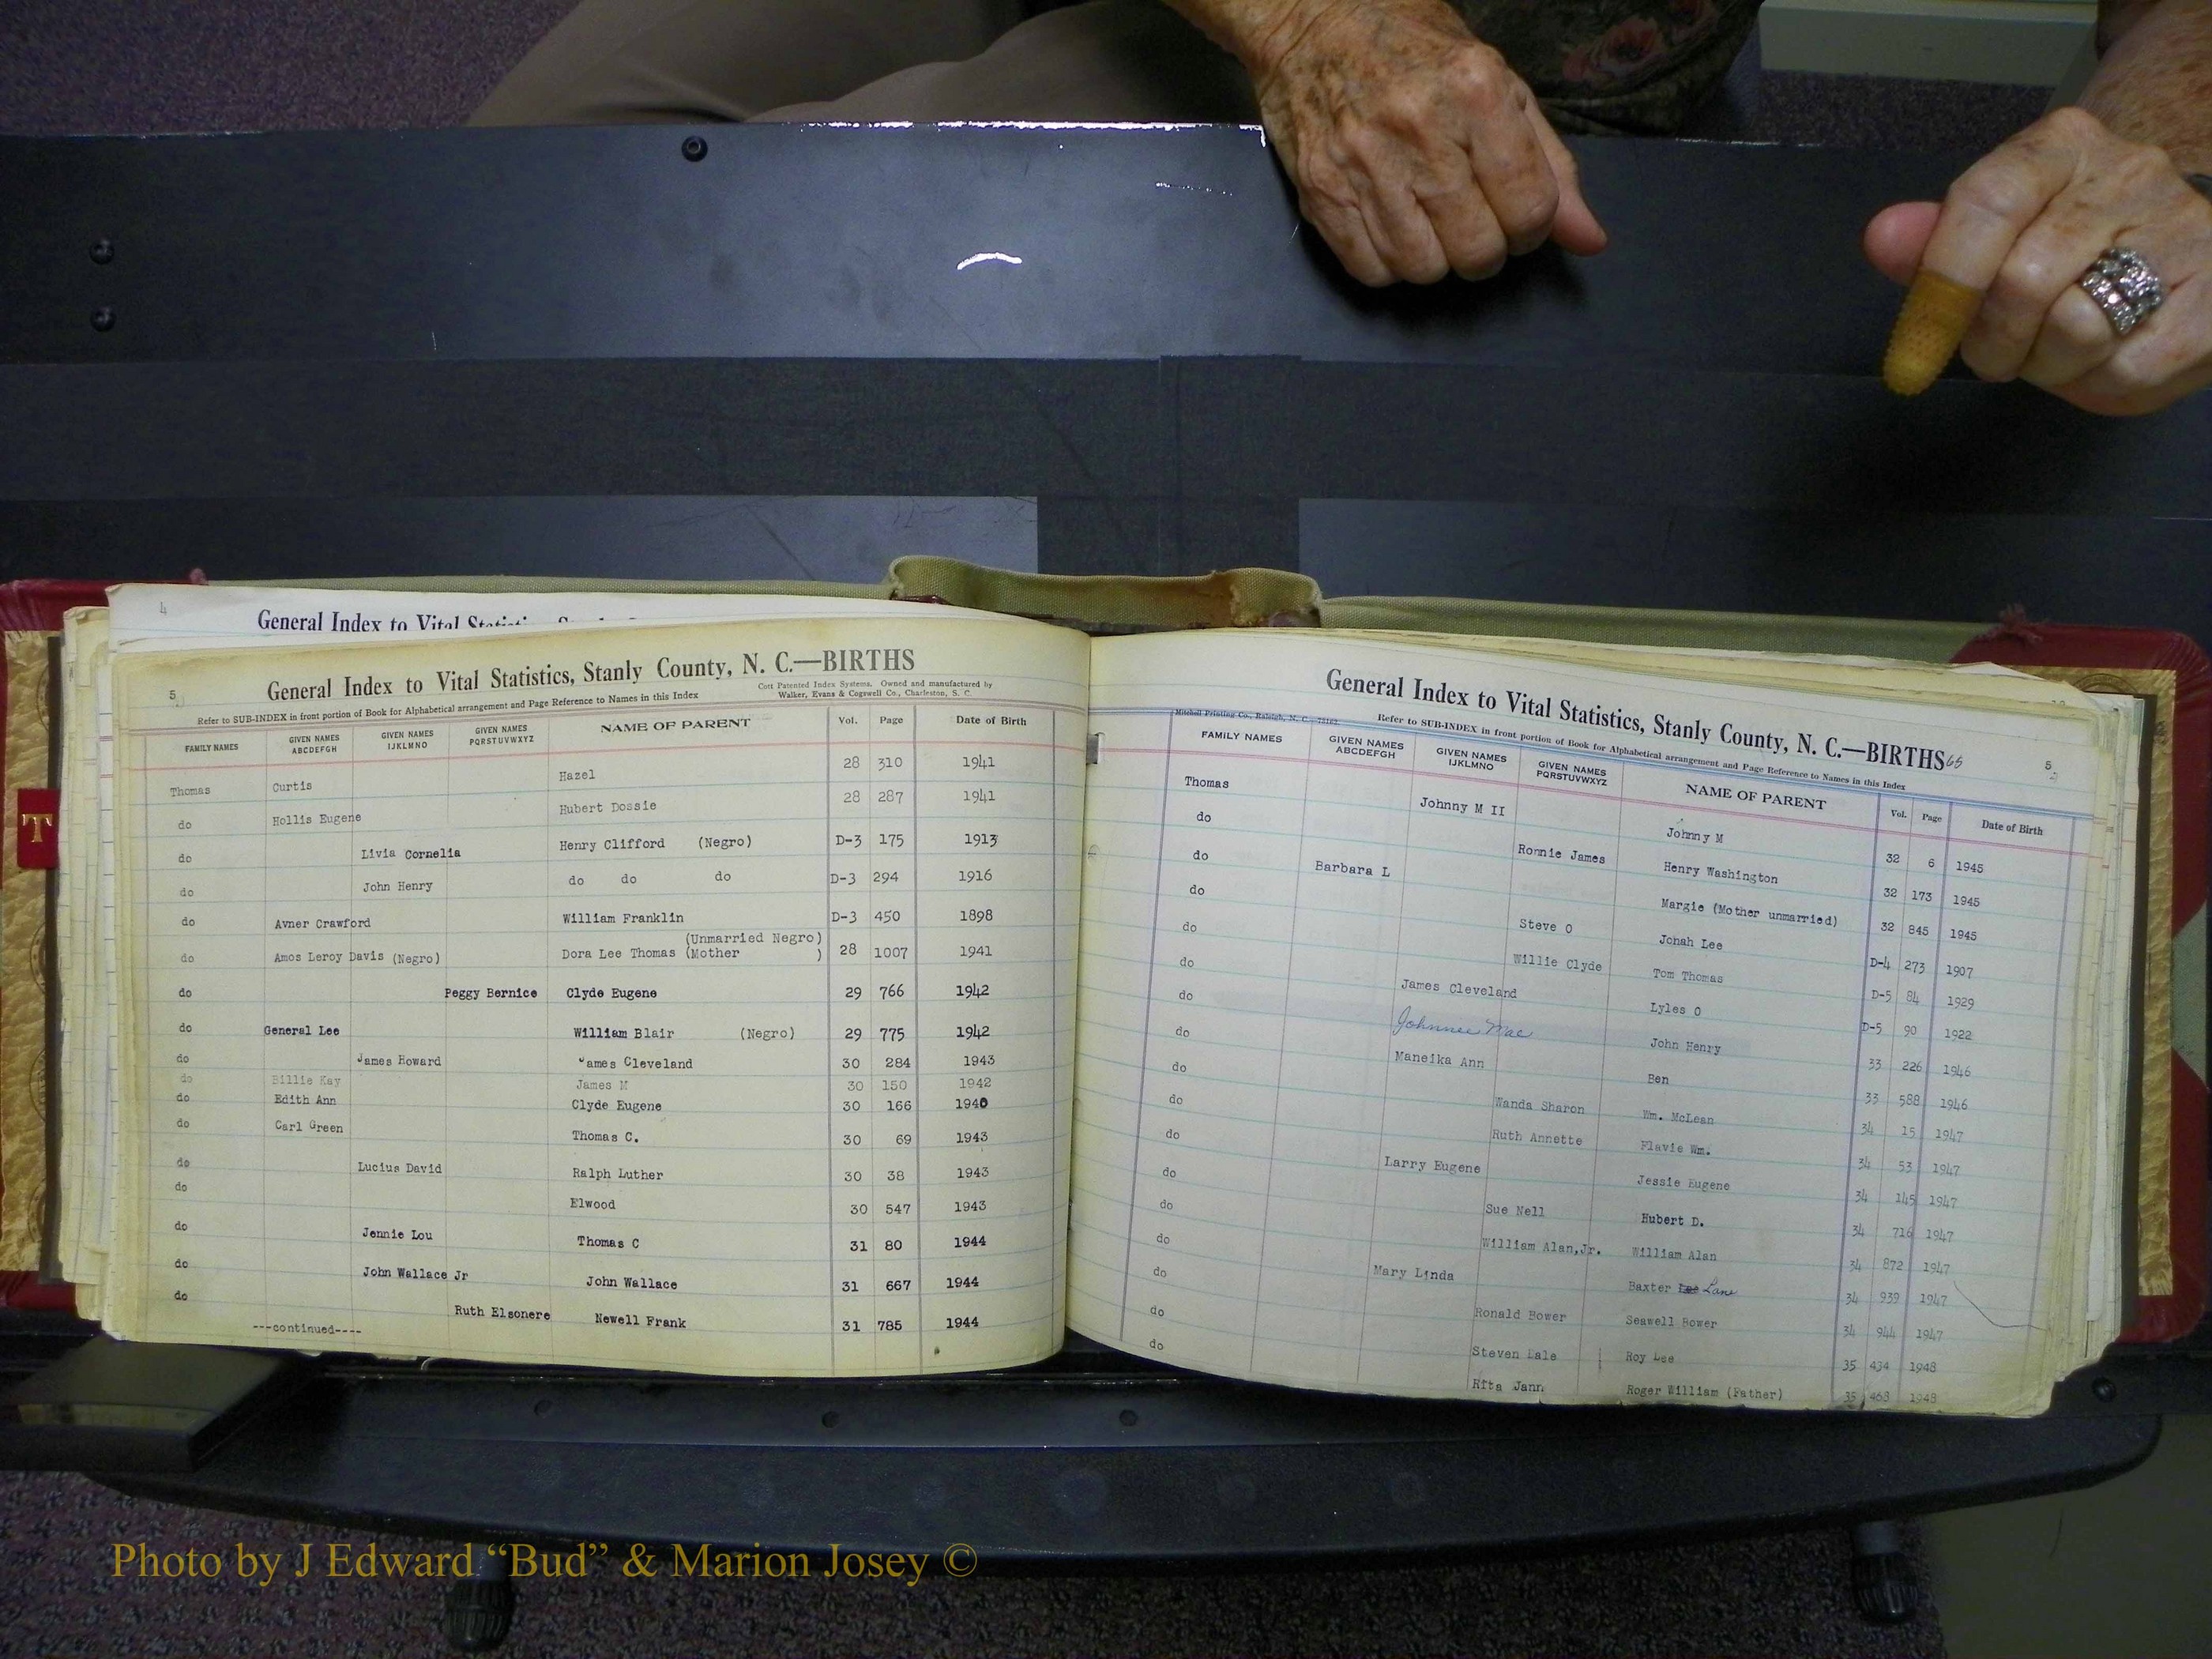 4
General Index to Vital Statistics, S
5
General Index to Vital Statistics, Stanly County, N. C.—BIRTHS
Refer to SUB-INDEX in front portion of Book for Alphabetical arrangement and Page Reference to Names in this Index
Cott Patented Index Systems, Owned and manufactured by
Walker, Evans & Cogswell Co., Charleston, S. C.
FAMILY NAMES GIVEN NAMES ABCDEFGH GIVEN NAMES IJKLMNO GIVEN NAMES PQRSTUVWXYZ NAME OF PARENT Vol. Page Date of Birth
Thomas Curtis Hazel 28 310 1941
do Hollis Eugene Hubert Dossie 28 287 1941
do Livia Cornelia Henry Clifford (Negro) D-3 175 1913
do John Henry do do do D-3 294 1916
do Avner Crawford William Franklin D-3 450 1898
do Amos Leroy Davis (Negro) Dora Lee Thomas (Unmarried Negro) (Mother ) 28 1007 1941
do Peggy Bernice Clyde Eugene 29 766 1942
do General Lee William Blair (Negro) 29 775 1942
do James Howard James Cleveland 30 284 1943
do Billie Kay James M 30 150 1942
do Edith Ann Clyde Eugene 30 166 1940
do Carl Green Thomas C. 30 69 1943
do Lucius David Ralph Luther 30 38 1943
do Elwood 30 547 1943
do Jennie Lou Thomas C 31 80 1944
do John Wallace Jr John Wallace 31 667 1944
do Ruth Elsonere Newell Frank 31 785 1944
---continued----
T
General Index to Vital Statistics, Stanly County, N. C.—BIRTHS 65
5
Mitchell Printing Co., Raleigh, N. C.
Refer to SUB-INDEX in front portion of Book for Alphabetical arrangement and Page Reference to Names in this Index
FAMILY NAMES GIVEN NAMES ABCDEFGH GIVEN NAMES IJKLMNO GIVEN NAMES PQRSTUVWXYZ NAME OF PARENT Vol. Page Date of Birth
Thomas Johnny M II Johnny M 32 6 1945
do Ronnie James Henry Washington 32 173 1945
do Barbara L Margie (Mother unmarried) 32 845 1945
do Steve O Jonah Lee D-4 273 1907
do Willie Clyde Tom Thomas D-5 84 1929
do James Cleveland Lyles O D-5 90 1922
do Johnnie Mae John Henry 33 226 1946
do Maneika Ann Ben 33 588 1946
do Wanda Sharon Wm. McLean 34 15 1947
do Ruth Annette Flavie Wm. 34 53 1947
do Larry Eugene Jessie Eugene 34 145 1947
do Sue Nell Hubert D. 34 716 1947
do William Alan,Jr. William Alan 34 872 1947
do Mary Linda Baxter Lee Lane 34 939 1947
do Ronald Bower Seawell Bower 34 944 1947
do Steven Dale Roy Lee 35 434 1948
do Rita Jann Roger William (Father) 35 468 1948
Photo by J Edward “Bud” & Marion Josey ©